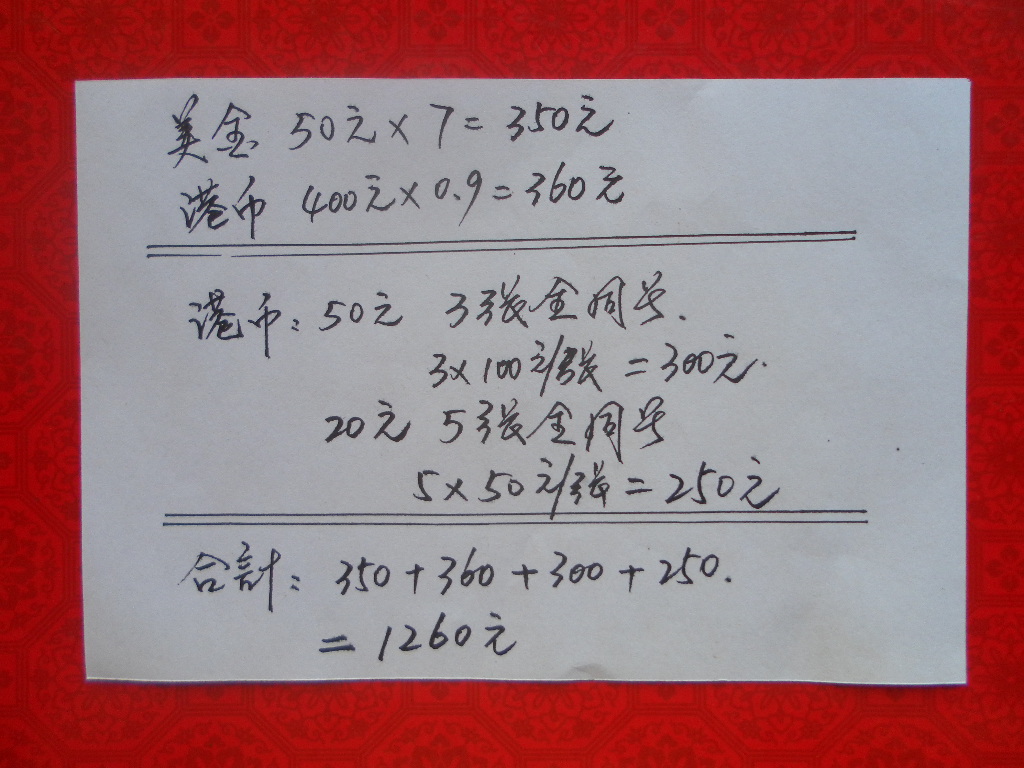 美金 50元×7=350元
港币 400元×0.9=360元
港币：50元 3張全同号.
3×100元/張=300元.
20元 5張全同号
5×50元/張=250元
合計：350+360+300+250.
=1260元